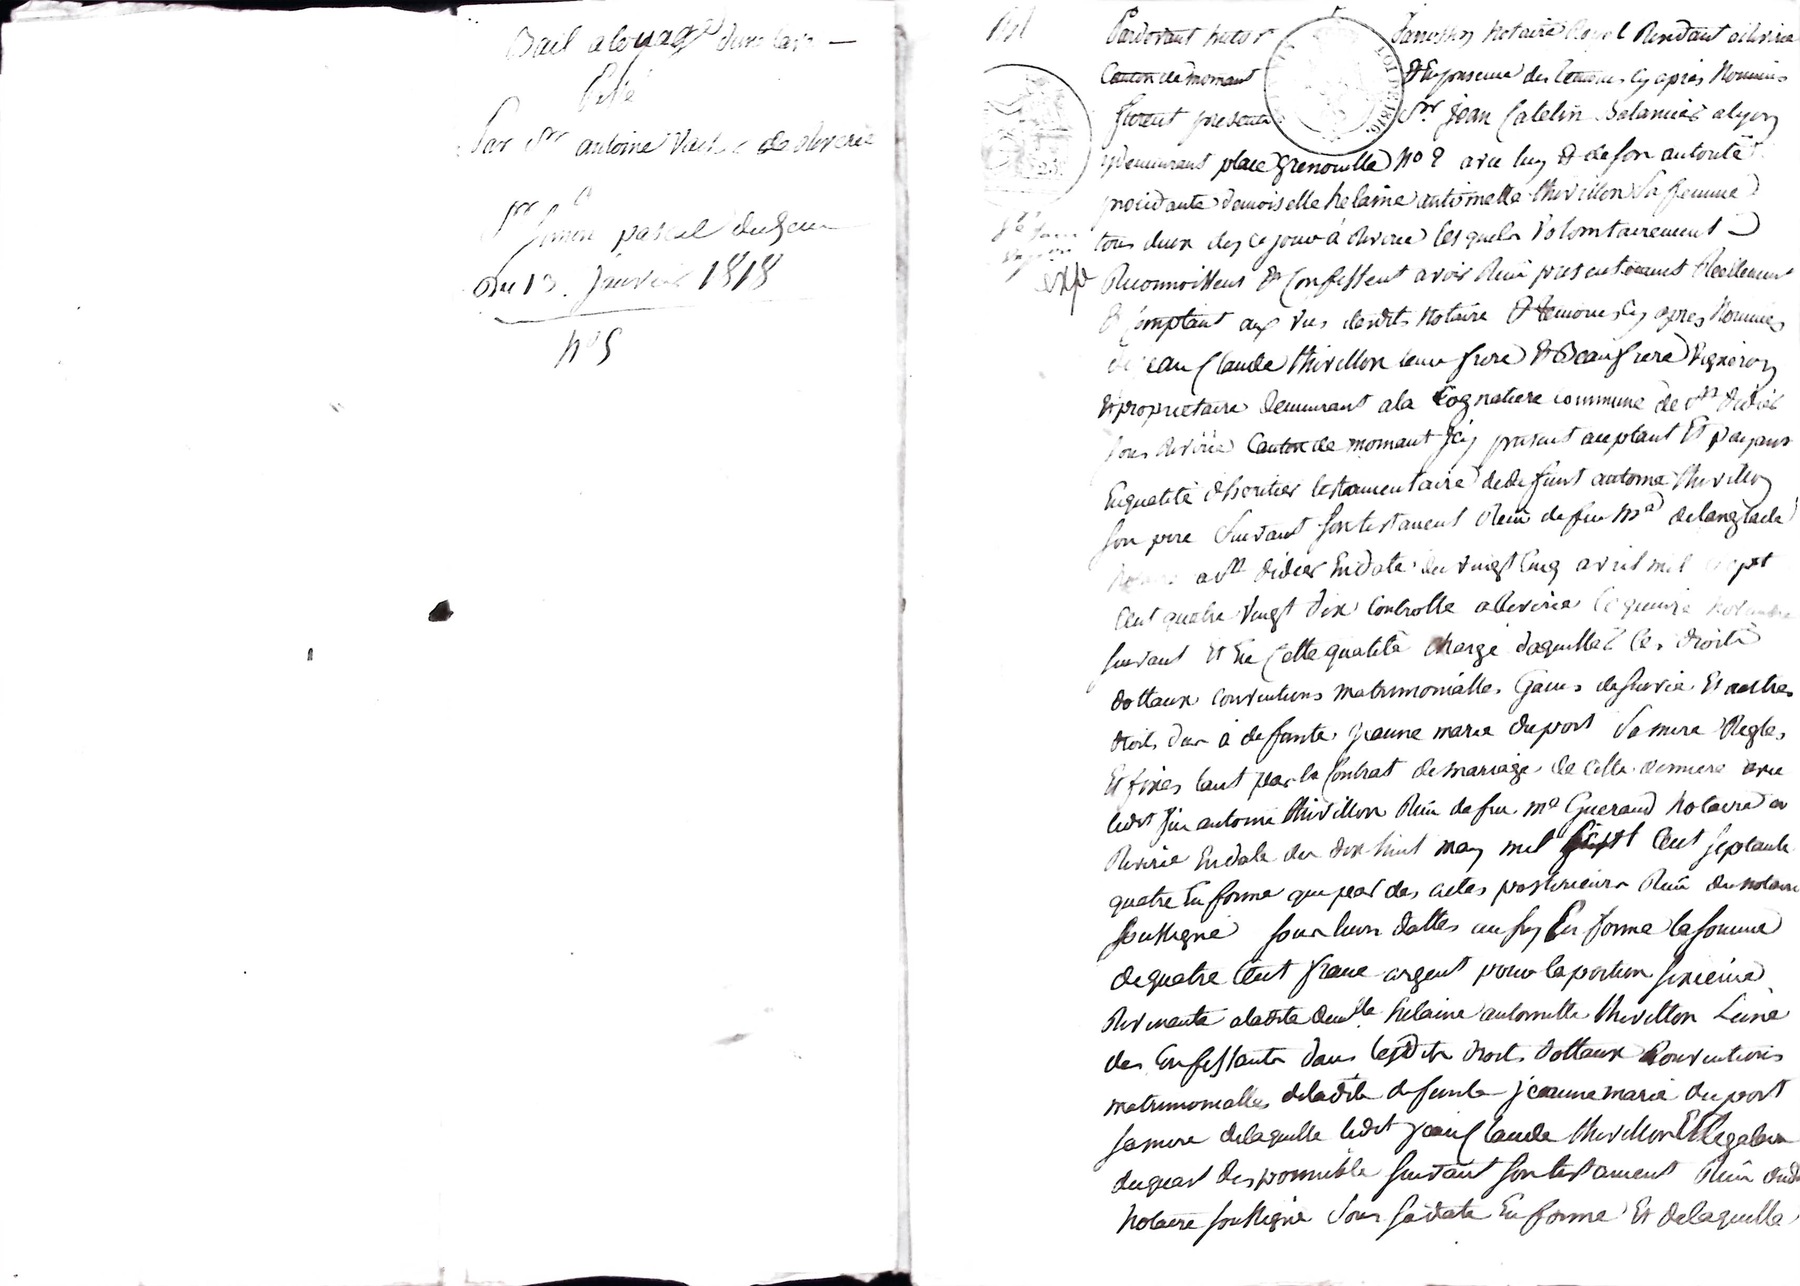 Bail alouage dun
Par Sr antoine de Riverie
a
Sr Simon pascal
Du 13. Janvier 1818
no 5
Pardevant notaire Royal Residant a Riverie
Canton de mornant & En presence des temoins cy apres Nommes
furent presents Sr. Jean Catelin Balancier a lyon
y demeurant place grenouille No 8 avec luy & de son autorité
procedante demoiselle helaine antoinette thivillon Sa femme
tous deux de ce jour à Riverie lesquels Volontairement
exp
Reconnoissent & Confessent avoir Reçû presentement Reellement
& Comptant aux vus desdits Notaire & temoins cy apres Nommés
de jean Claude thivillon leur frere & Beaufrere Vigneron
& proprietaire demeurant a la Cognatiere commune de st didier
sous Riverie Canton de mornant icy present acceptant Et payant
En qualité d'heritier testamentaire de defunt antoine thivillon
son pere Suivant son testament Reçû de feu Me delanglade
a st didier En date du vingt Cinq avril mil sept
Cent quatre vingt dix Controllé a Riverie le
suivant Et En Cette qualité Chargé daquitter les droits
dottaux conventions matrimonialles Gains de survie Et autres
droits dus à defunte jeanne marie duport Sa mere Regles
Et fixés tant par le Contrat de mariage de cette derniere avec
ledit feu antoine thivillon Reçû de feu Me Gueraud notaire a
Riverie En date du dix huit may mil sept Cent septante
quatre En forme que par des actes posterieurs Reçû du notaire
soussigné sous leurs dattes aussy En forme la somme
de quatre Cent franc argent pour la portion sixieme
Revenante a ladite demlle helaine antoinette thivillon L'une
des Confessants dans lesdits droits dottaux Conventions
matrimonialles de ladite defunte jeanne marie duport
sa mere de laquelle ledit jean Claude thivillon Est legataire
du quart disponnible suivant son testament Reçû dudit
Notaire soussigné sous sa date En forme Et de laquelle